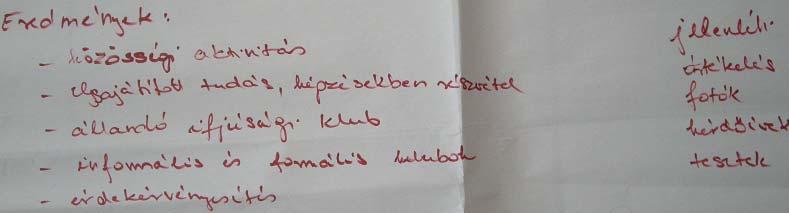 Eredmények:
- közösségi aktivitás
- elsajátított tudás, képzésekben részvétel
- állandó ifjúsági klub
- informális és formális klubok
- érdekérvényesítés
jelenléti
értékelés
fotók
kérdőívek
tesztek